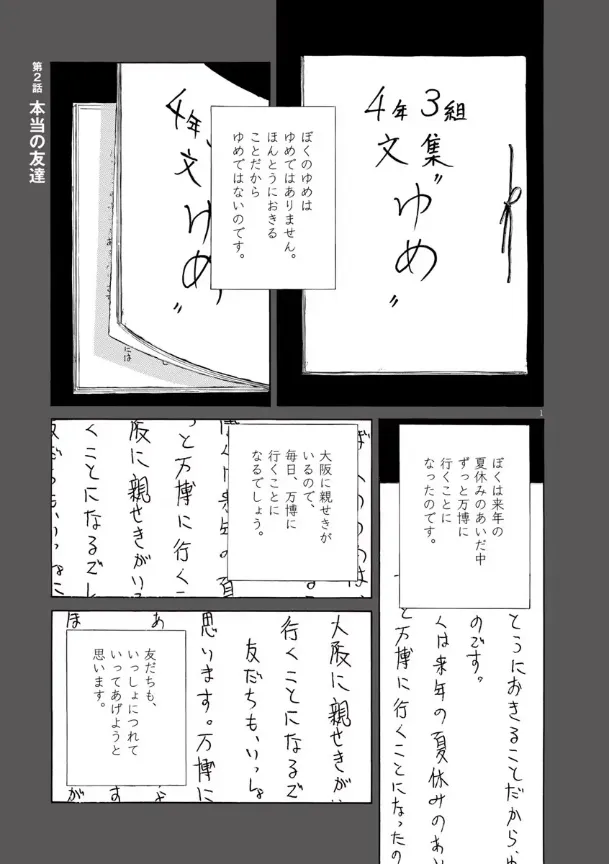 第2話 本当の友達
4年3組
文集
“ゆめ”
ぼくのゆめは
ゆめではありません。
ほんとうにおきる
ことだから
ゆめではないのです。
4年
文
“ゆめ”
には
1
ぼくは来年の
夏休みのあいだ中
ずっと万博に
行くことに
なったのです。
とうにおきることだから、ゆ
のです。
くは来年の夏休みのあい
と万博に行くことになったの
大阪に親せきが
いるので、
毎日、万博に
行くことに
なるでしょう。
ぼくは来年の夏
っと万博に行くこ
阪に親せきがい
くことになるでし
友だちも、いっしょに
友だちも、
いっしょにつれて
いってあげようと
思います。
大阪に親せきがい
行くことになるで
友だちも、いっしょ
思います。万博に
あ
ほ
す
が